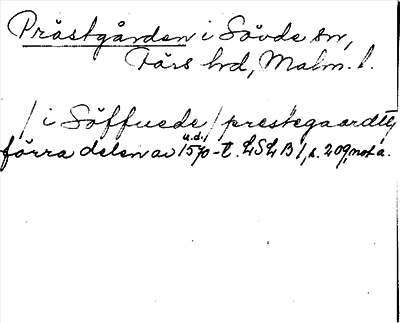 Prästgården i Sövde sn,
Färs hd, Malm. l.
/i Söffuede/ prestegaardtz
u.d./
förra delen av 1570-t. LSLB 1, s. 209, not a.